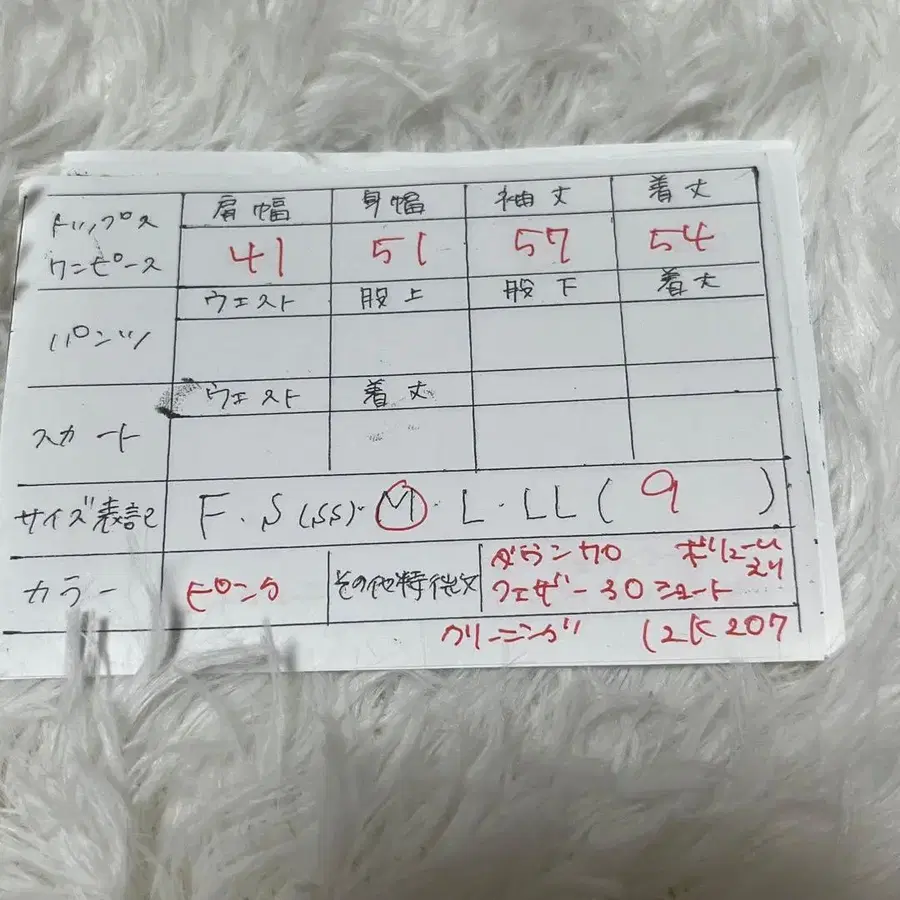 肩幅 身幅 袖丈 着丈
トップス
ワンピース 41 51 57 54
ウエスト 股上 股下 着丈
パンツ
ウエスト 着丈
スカート
サイズ表記 F・S(SS)・M・L・LL( 9 )
カラー ピンク その他特徴 ダウン70 ボリューム
フェザー30 ショート えり
クリーニング 12K207